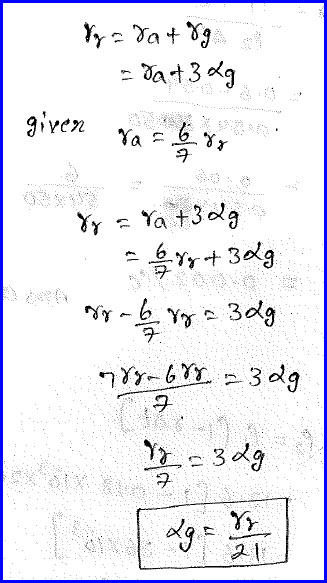 γr = γa + γg
= γa + 3αg
given γa = 6/7 γr
γr = γa + 3αg
= 6/7 γr + 3αg
γr - 6/7 γr = 3αg
7γr - 6γr / 7 = 3αg
γr / 7 = 3αg
αg = γr / 21